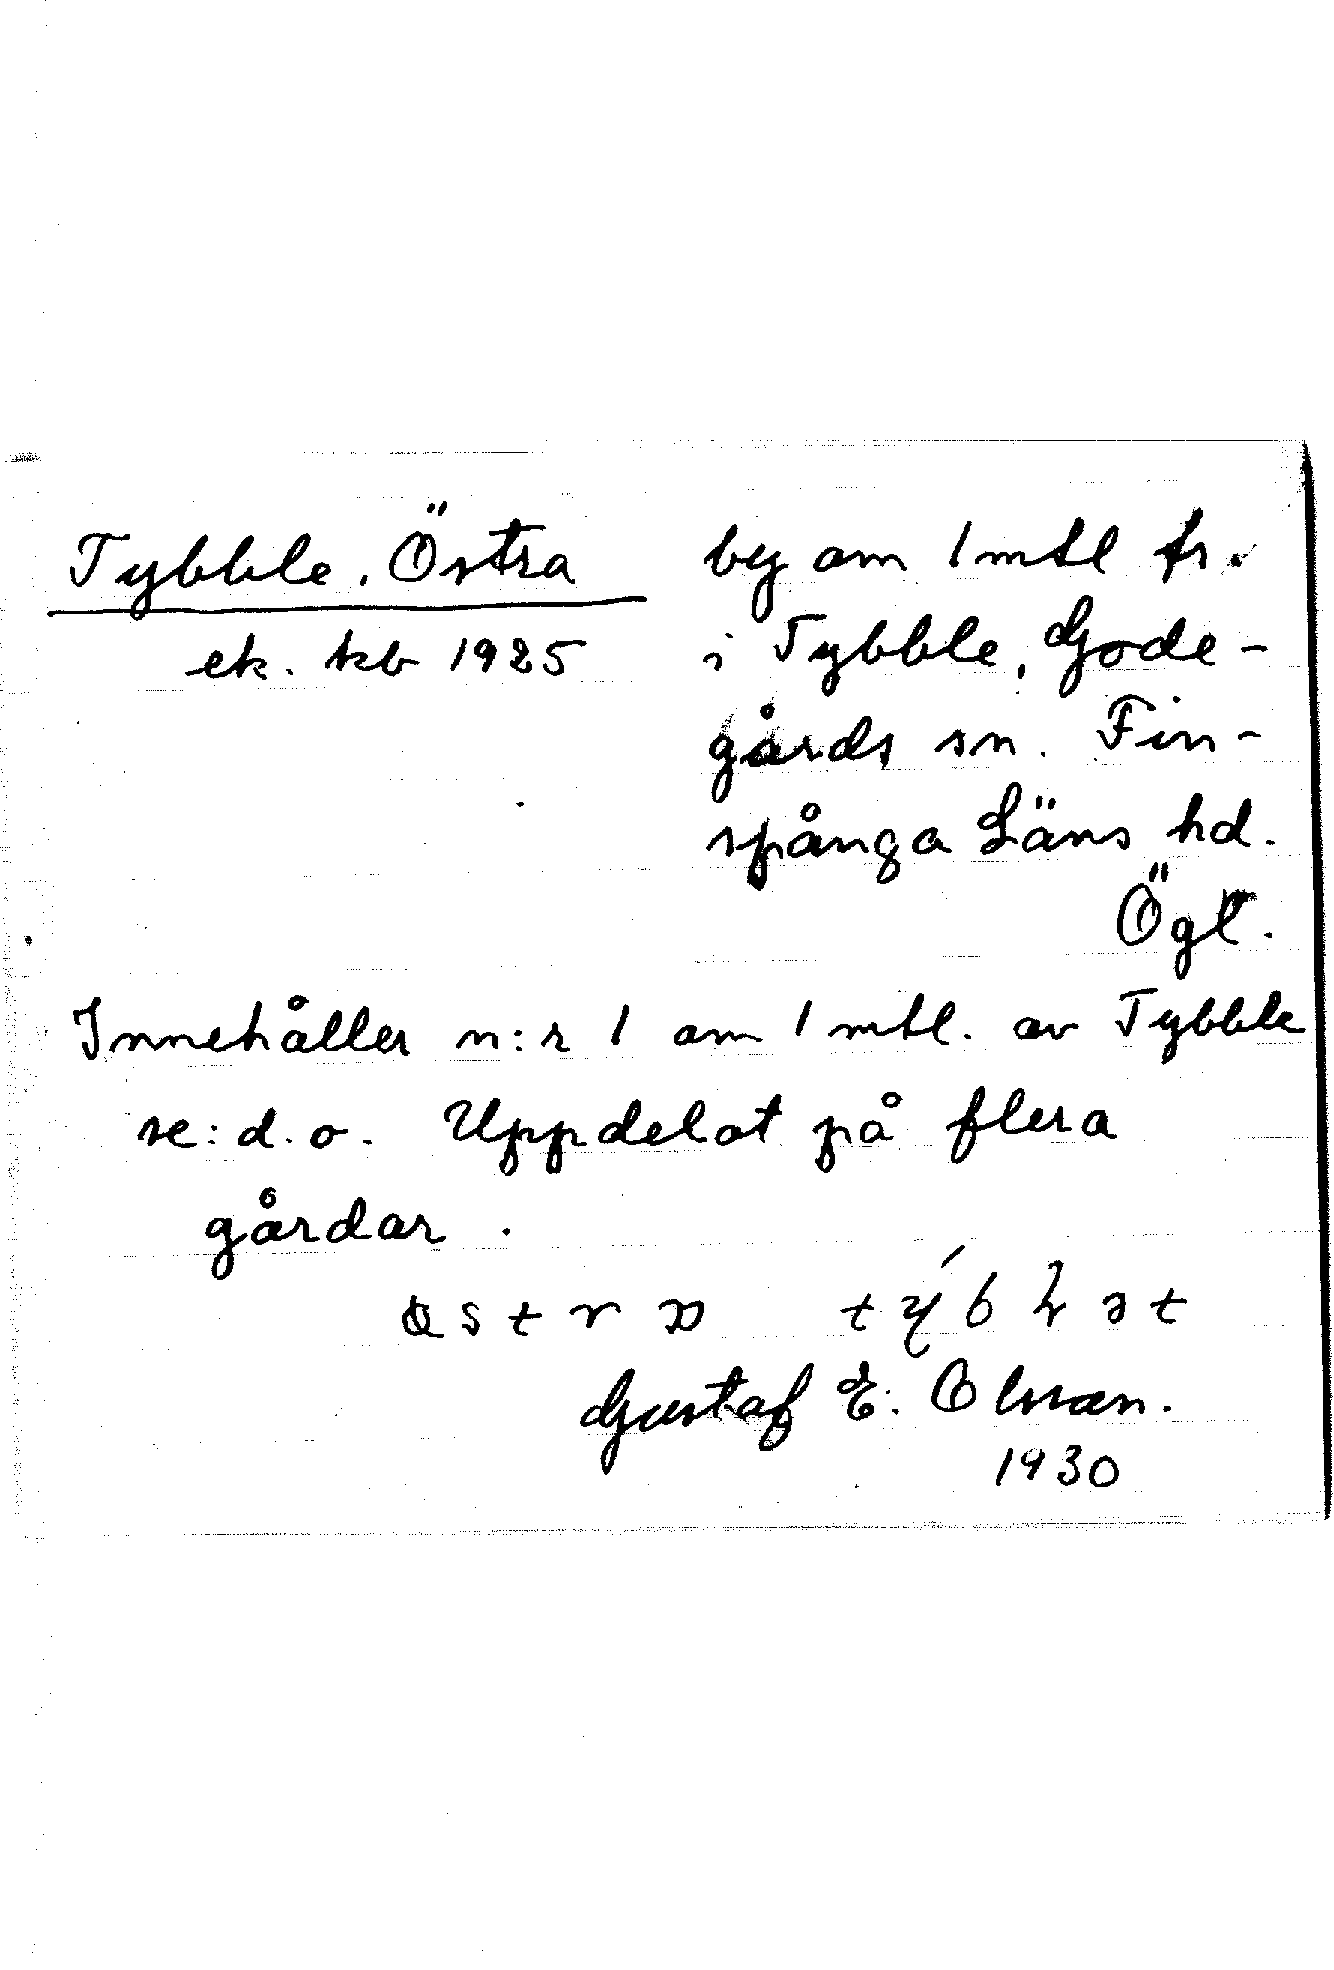 Tybble, Östra
ek. kb 1925
by om 1 mtl fr.
i Tybble, Gode-
gårds sn. Fin-
spånga Läns hd.
Ögl.
Innehåller n:r 1 om 1 mtl. av Tybble
se: d. o. Uppdelat på flera
gårdar.
Gustaf E: Olsson.
1930